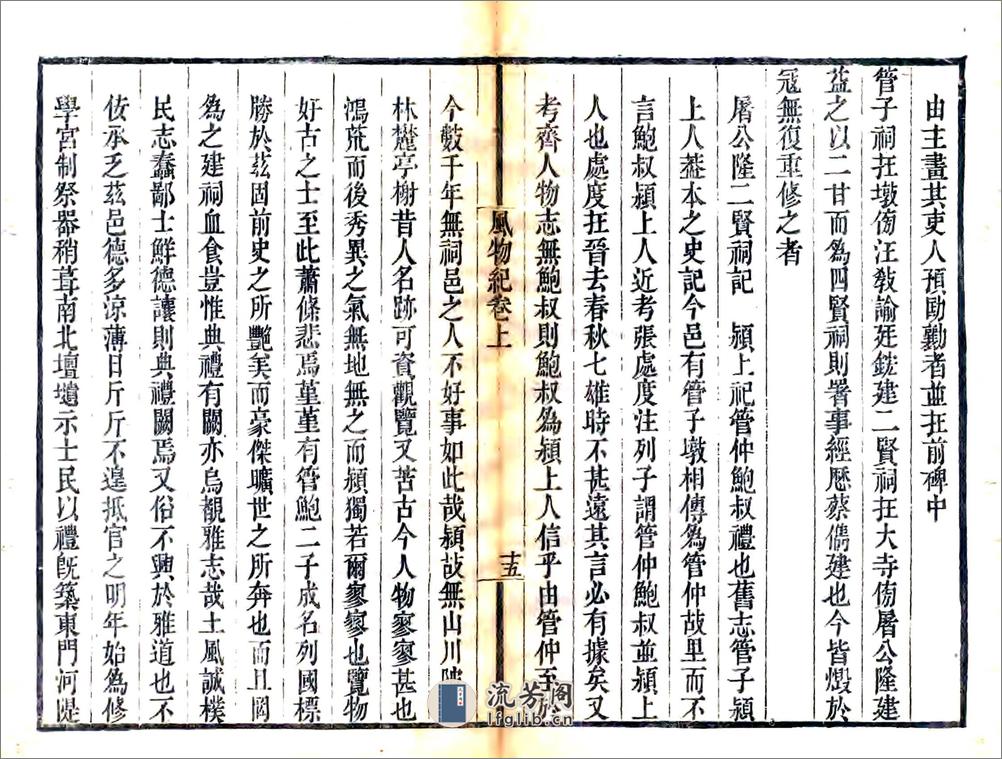 由主畫其吏人預勛勷者並在前碑中
管子祠在墩傍汪敎諭廷鎹建二賢祠在大寺傍屠公隆建
益之以二甘而為四賢祠則署事經歷蔡儁建也今皆燬於
寇無復重修之者
屠公隆二賢祠記　潁上祀管仲鮑叔禮也舊志管子潁
上人葢本之史記今邑有管子墩相傳為管仲故里而不
言鮑叔潁上人近考張處度注列子謂管仲鮑叔並潁上
人也處度在晉去春秋七雄時不甚遠其言必有據矣又
考齊人物志無鮑叔則鮑叔為潁上人信乎由管仲至於
風物紀卷上
十五
今數千年無祠邑之人不好事如此哉潁故無山川陂
林麓亭榭昔人名跡可資觀覽又苦古今人物寥寥甚也
鴻荒而後秀異之氣無地無之而潁獨若爾寥寥也覽物
好古之士至此蕭條悲焉菫菫有管鮑二子成名列國標
勝於茲固前史之所艷羨而豪傑曠世之所奔也而且闕
為之建祠血食豈惟典禮有闕亦烏覩雅志哉土風誠樸
民志蠢鄙士鮮德讓則典禮闕焉又俗不興於雅道也不
佞承乏茲邑德多涼薄日斤斤不遑抵官之明年始為修
學宮制祭器稍葺南北壇壝示士民以禮既築東門河隄
流芳閣
lfglib.cn